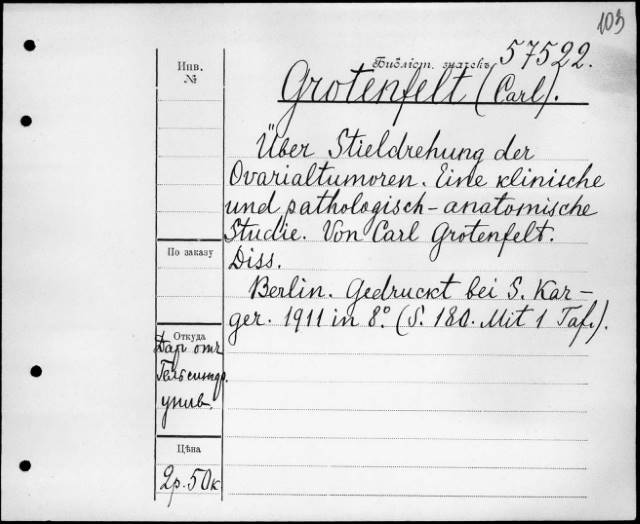 103
Инв.
№
Библіот. значекъ 57522.
Grotenfelt (Carl).
Über Stieldrehung der
Ovarialtumoren. Eine klinische
und pathologisch-anatomische
Studie. Von Carl Grotenfelt.
Diss.
Berlin. Gedruckt bei S. Kar-
ger. 1911 in 8º. (S. 180. Mit 1 Taf.).
По заказу
Откуда
Дар отъ
Гельсингф.
унив.
Цѣна
2р. 50к